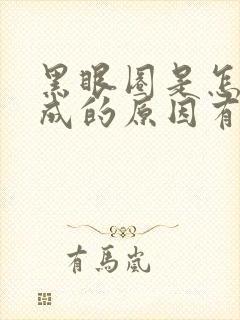 黑眼圈是怎
成的原因有
有馬嵐